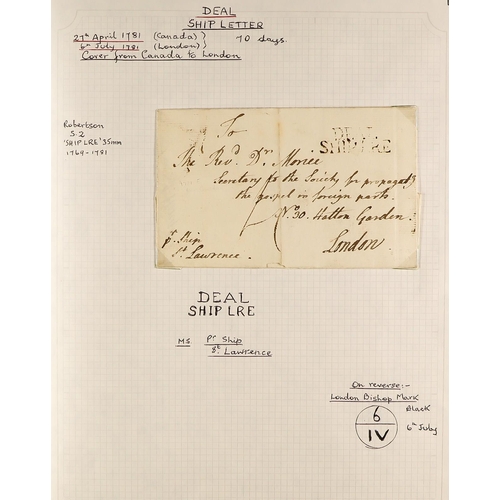 DEAL
SHIP LETTER
27th April 1781 (Canada) } 70 days.
6th July 1781 (London) }
Cover from Canada to London
Robertson
S.2
'SHIP LRE' 35mm
1769-1781
To
DEAL
SHIP LRE
The Revd. Dr. Morice
Secretary for the Society for propagatg
the gospel in foreign parts.
No. 30. Hatton Garden.
London
pr. Ship
St. Lawrence.
DEAL
SHIP LRE
MS. Pr Ship
St Lawrence
On reverse:-
London Bishop Mark
6
IV
Black
6th July